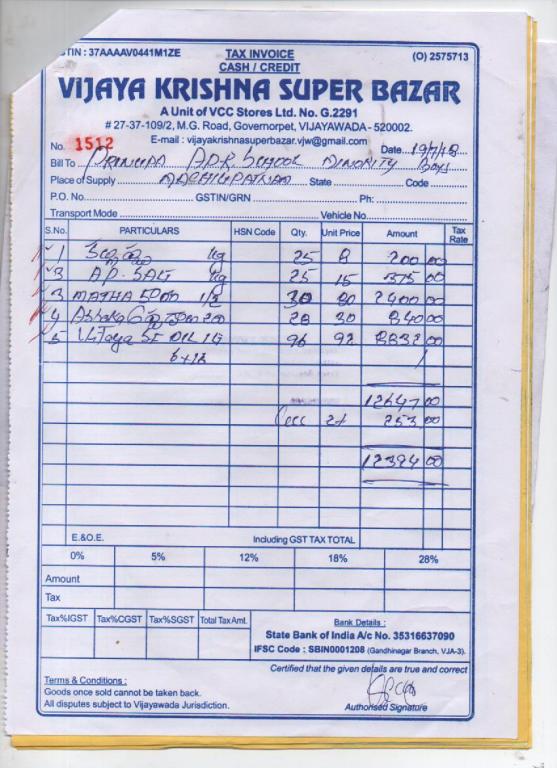 STIN : 37AAAAV0441M1ZE TAX INVOICE (O) 2575713
CASH / CREDIT
VIJAYA KRISHNA SUPER BAZAR
A Unit of VCC Stores Ltd. No. G.2291
# 27-37-109/2, M.G. Road, Governorpet, VIJAYAWADA - 520002.
E-mail : vijayakrishnasuperbazar.vjw@gmail.com
No. 1512 Date 19/7/18
Bill To SCHOOL MINORITY Boys
Place of Supply MACHILIPATNAM State Code
P.O. No. GSTIN/GRN Ph:
Transport Mode Vehicle No.
S.No. PARTICULARS HSN Code Qty. Unit Price Amount Tax Rate
1 kg 25 8 200 00
2 A.P. SALT kg 25 15 375 00
3 1/2 30 80 2400 00
4 Ashoka 200 28 30 840 00
5 Vijaya OIL 96 92 8832 00
12647 00
2% 253 00
12394 00
E.&O.E. Including GST TAX TOTAL
0% 5% 12% 18% 28%
Amount
Tax
Tax%IGST Tax%CGST Tax%SGST Total Tax Amt.
Bank Details :
State Bank of India A/c No. 35316637090
IFSC Code : SBIN0001208 (Gandhinagar Branch, VJA-3).
Certified that the given details are true and correct
Terms & Conditions :
Goods once sold cannot be taken back.
All disputes subject to Vijayawada Jurisdiction.
Authorised Signature